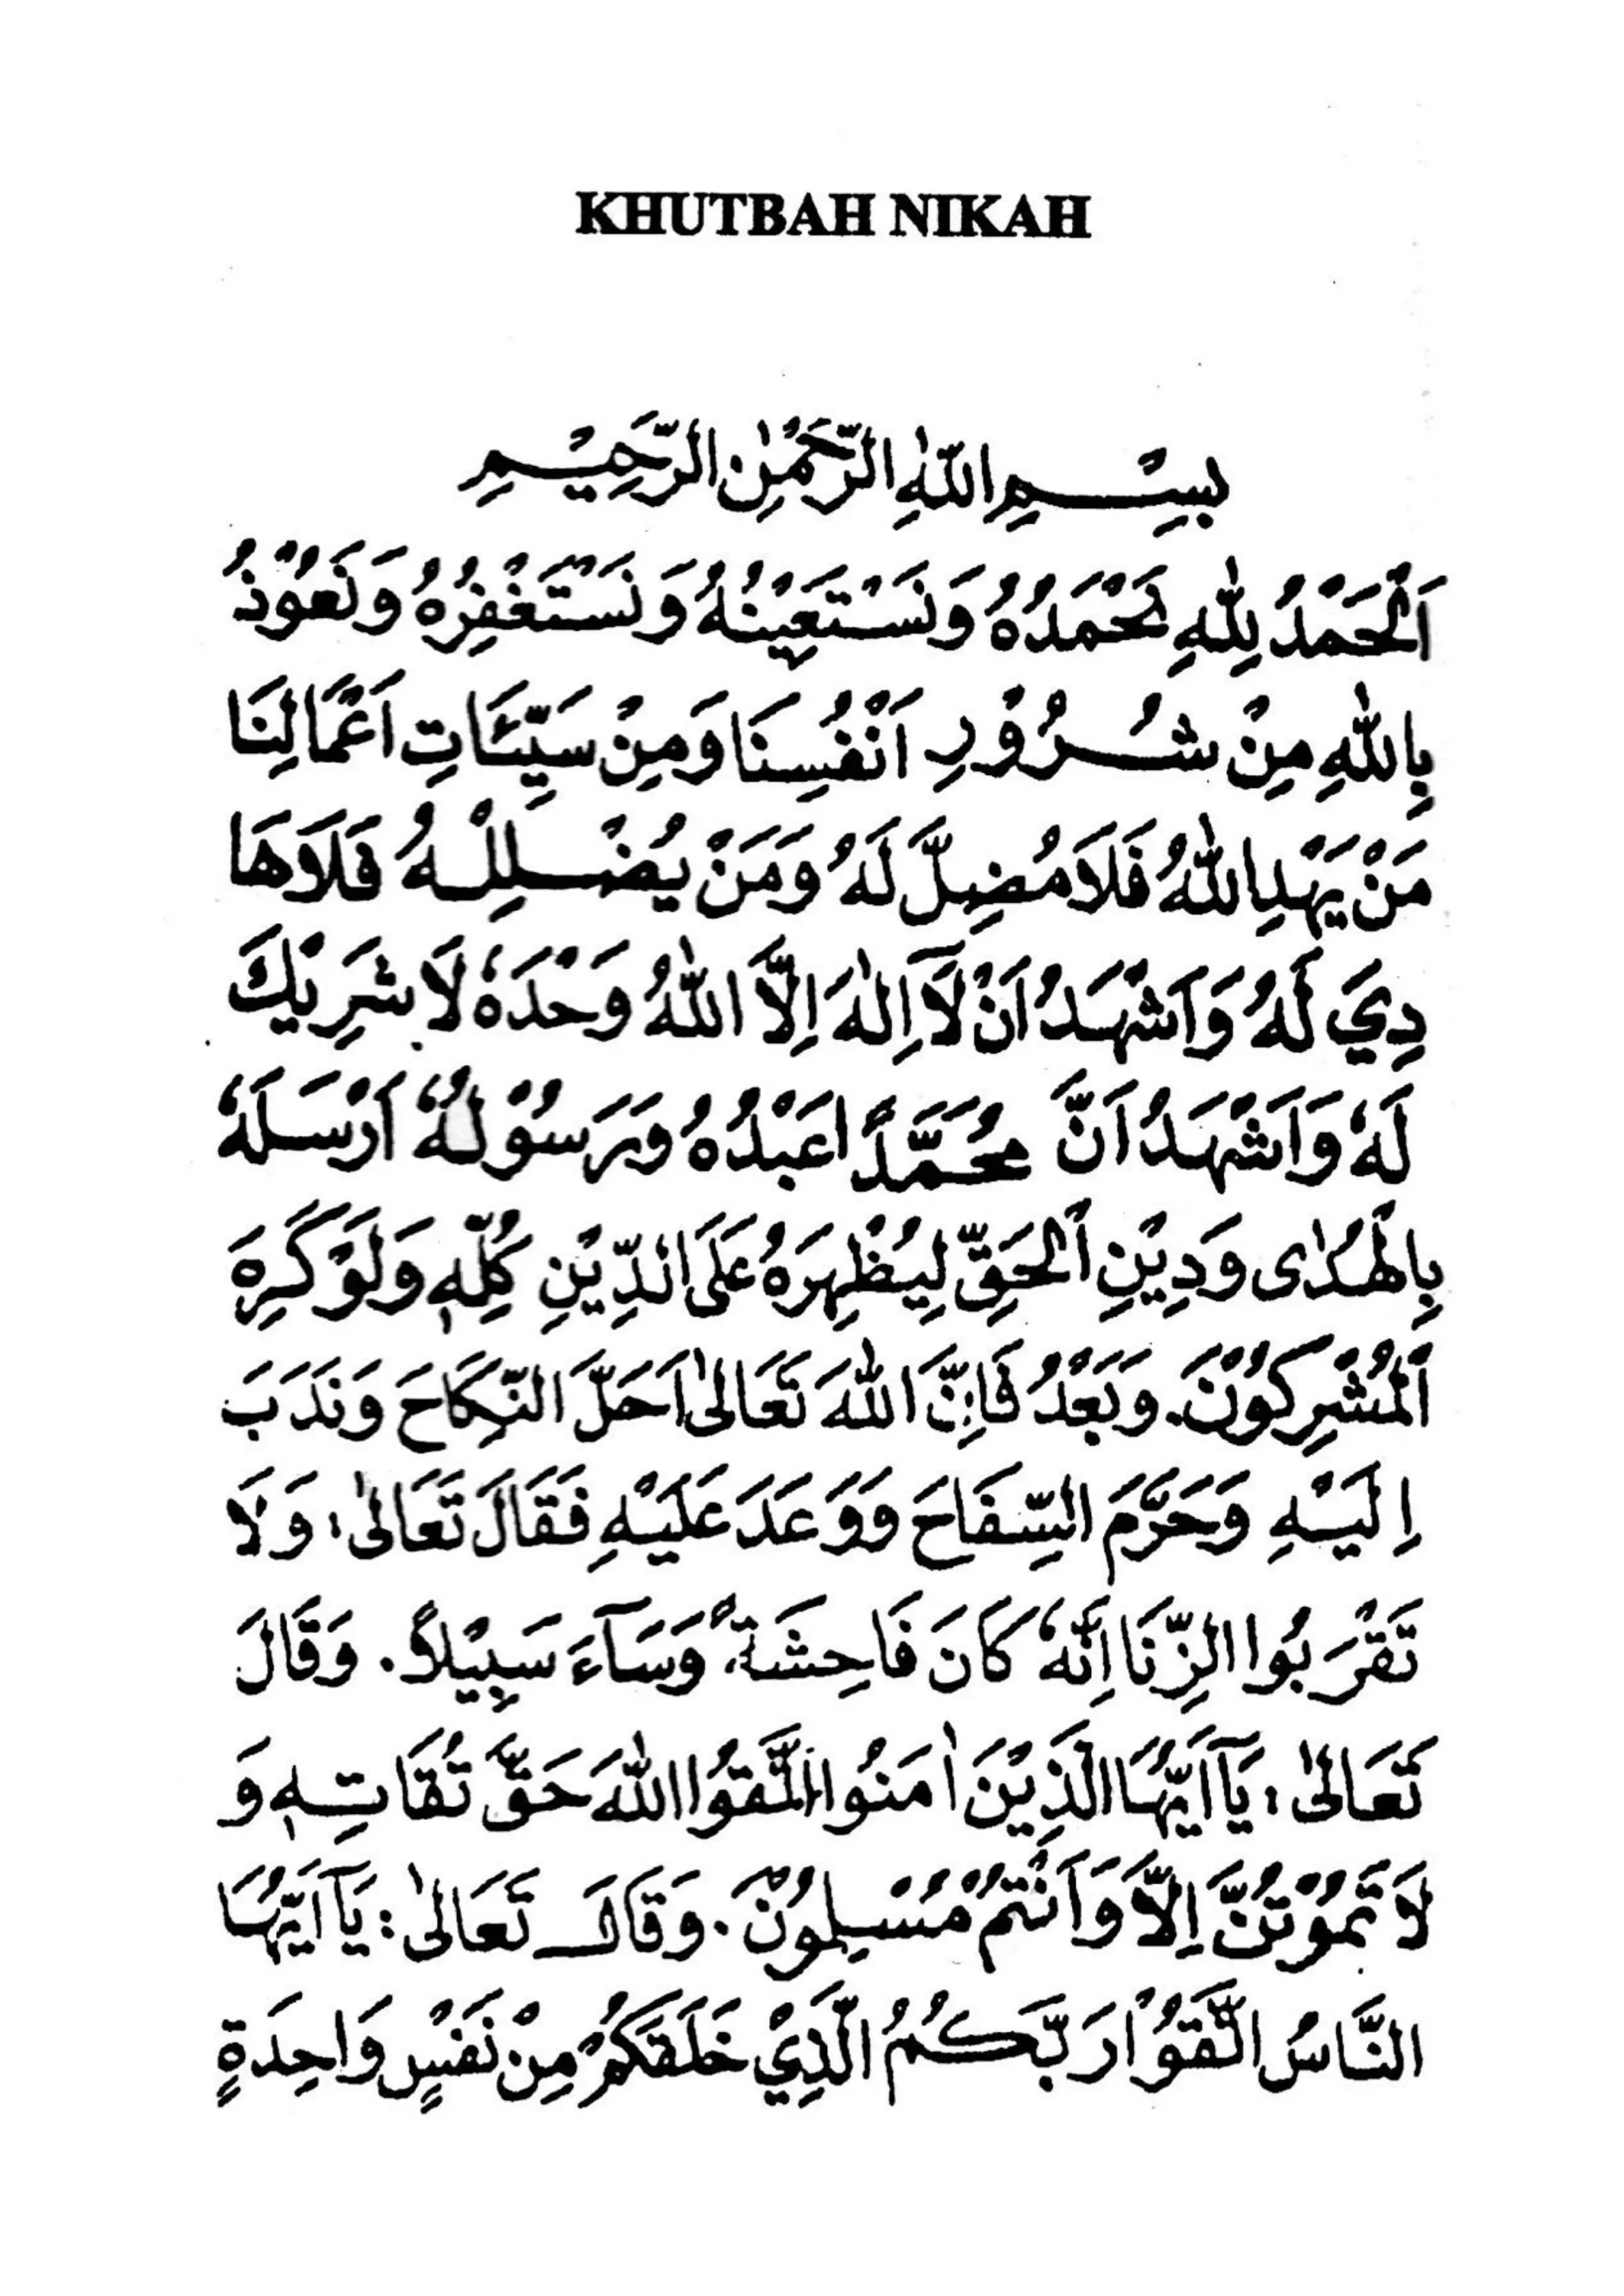 KHUTBAH NIKAH
بِسْمِ اللّٰهِ الرَّحْمٰنِ الرَّحِيْمِ
اَلْحَمْدُ لِلّٰهِ نَحْمَدُهُ وَنَسْتَعِيْنُهُ وَنَسْتَغْفِرُهُ وَنَعُوْذُ
بِاللّٰهِ مِنْ شُرُوْرِ اَنْفُسِنَا وَمِنْ سَيِّئَاتِ اَعْمَالِنَا
مَنْ يَهْدِ اللّٰهُ فَلَا مُضِلَّ لَهُ وَمَنْ يُضْلِلْهُ فَلَا هَا
دِيَ لَهُ وَاَشْهَدُ اَنْ لَآ اِلٰهَ اِلَّا اللّٰهُ وَحْدَهٗ لَا شَرِيْكَ
لَهٗ وَاَشْهَدُ اَنَّ مُحَمَّدًا عَبْدُهُ وَرَسُوْلُهٗ اَرْسَلَهٗ
بِالْهُدٰى وَدِيْنِ الْحَقِّ لِيُظْهِرَهُ عَلَى الدِّيْنِ كُلِّهٖ وَلَوْ كَرِهَ
الْمُشْرِكُوْنَ. وَبَعْدُ فَاِنَّ اللّٰهَ تَعَالٰى اَحَلَّ النِّكَاحَ وَنَدَبَ
اِلَيْهِ وَحَرَّمَ السِّفَاحَ وَوَعَدَ عَلَيْهِ فَقَالَ تَعَالٰى: وَلَا
تَقْرَبُوا الزِّنَا اِنَّهٗ كَانَ فَاحِشَةً، وَسَآءَ سَبِيْلًا. وَقَالَ
تَعَالٰى: يَآ اَيُّهَا الَّذِيْنَ اٰمَنُوا اتَّقُوا اللّٰهَ حَقَّ تُقَاتِهٖ وَ
لَا تَمُوْتُنَّ اِلَّا وَاَنْتُمْ مُسْلِمُوْنَ. وَقَالَ تَعَالٰى: يَآ اَيُّهَا
النَّاسُ اتَّقُوْا رَبَّكُمُ الَّذِيْ خَلَقَكُمْ مِنْ نَفْسٍ وَاحِدَةٍ